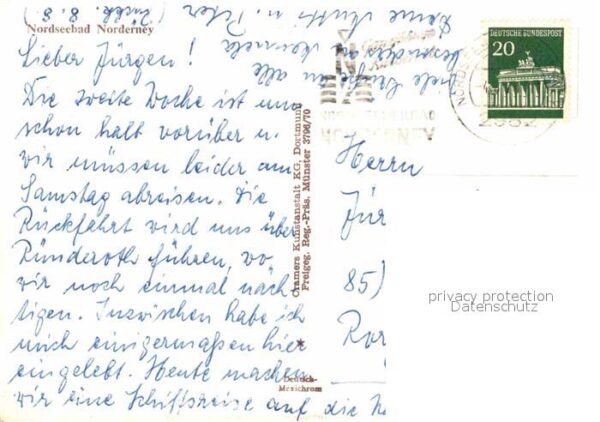 Nordseebad Norderney
Lieber Jürgen!
Die zweite Woche ist nun
schon halb vorüber u.
wir müssen leider am
Samstag abreisen. Die
Rückfahrt wird uns über
Ründeroth führen, wo
wir noch einmal näch-
tigen. Inzwischen habe ich
mich einigermaßen hier
eingelebt. Heute machen
wir eine Schiffsreise auf die N
viele
besonders
an alle
Deine Mutti u. Peter
Cramers Kunstanstalt KG, Dortmund
Freigeg. Reg.-Präs. Münster 3796/70
Deutsch-
Mexichrom
DEUTSCHE BUNDESPOST
20
2982
NORDERNEY
Herrn
Jür
85)
privacy protection
Datenschutz